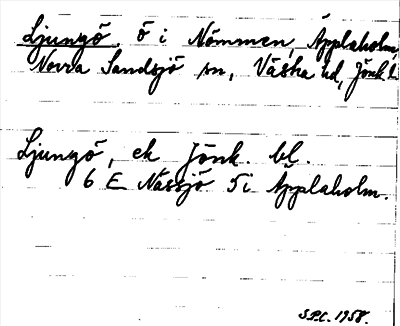 Ljungö, ö i Nömmen, Äpplaholm,
Norra Sandsjö sn, Västra hd, Jönk. l.
Ljungö, ek Jönk. bl.
6 E Nässjö 5 i Äpplaholm.
S.P.C. 1958.